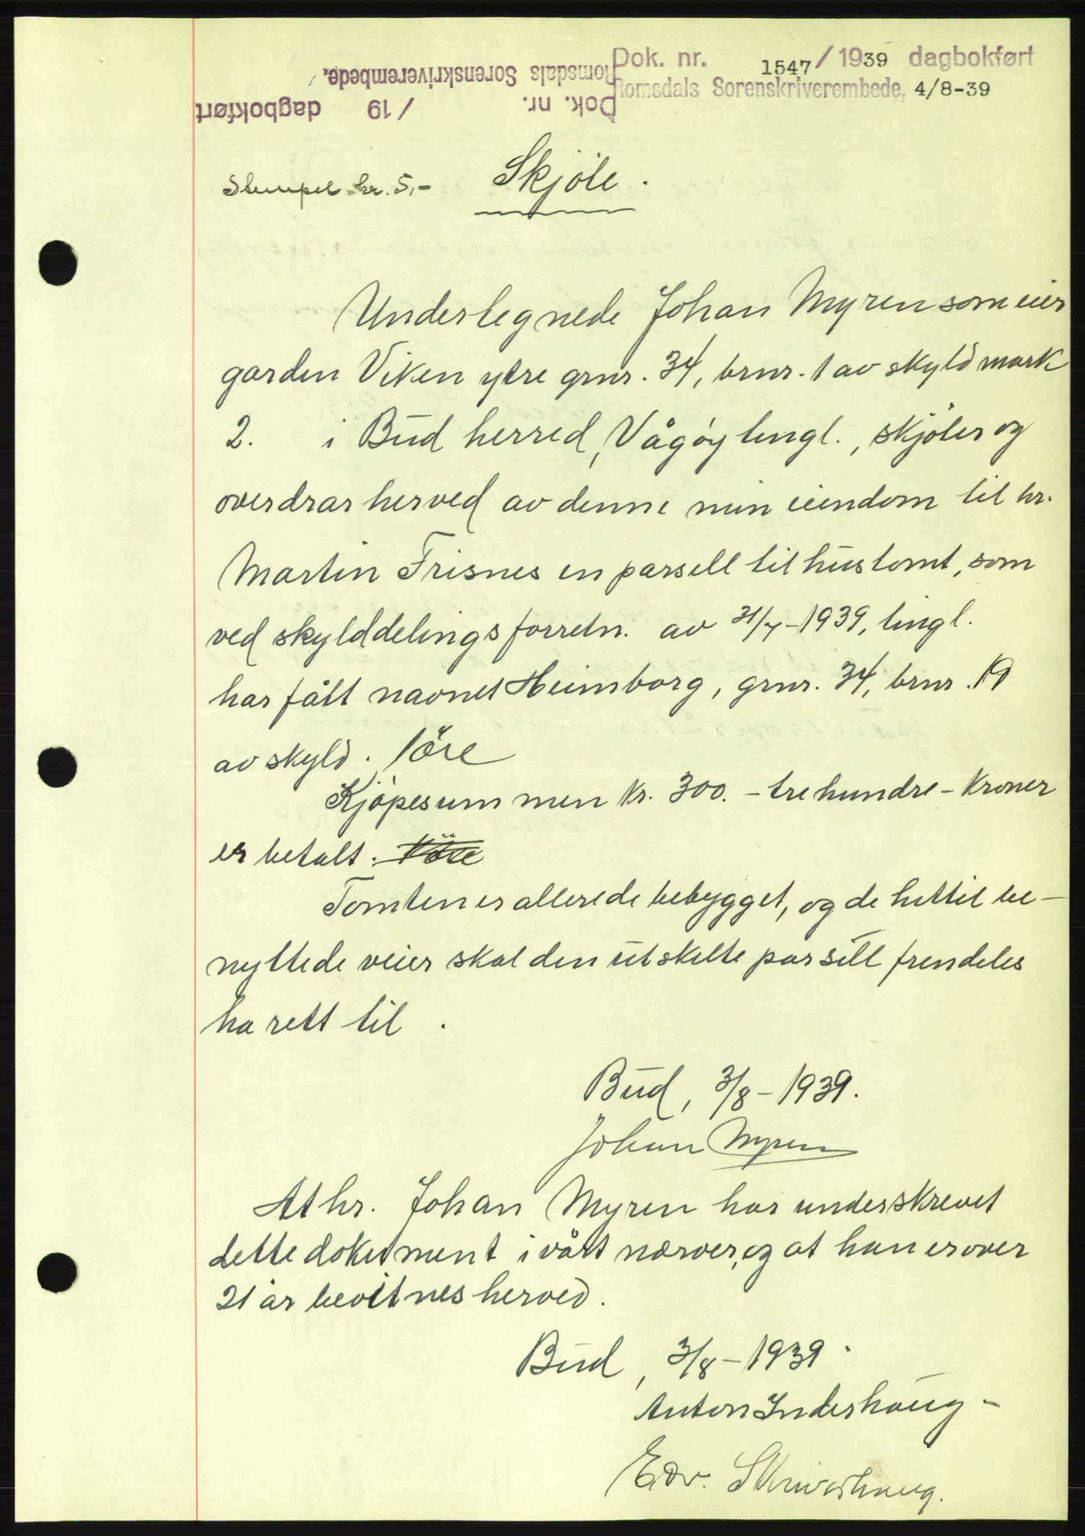 Dok. nr. 1547 / 1939 dagbokført
Romsdals Sorenskriverembede, 4/8-39
Dok. nr. / 19 dagbokført
Romsdals Sorenskriverembede,
Stempel kr. 5,-
Skjöte.
Undertegnede Johan Myren som eier
garden Viken ytre grnr. 34, brnr. 1 av skyld mark
2. i Bud herred, Vågøy tingl., skjöter og
overdrar herved av denne min eiendom til hr.
Martin Frisnes en parsell til hustomt, som
ved skylddelingsforretn. av 31/7-1939, tingl.
har fått navnet Heimborg, grnr. 34, brnr. 19
av skyld. 1 öre
Kjöpesummen kr. 300. - trehundre - kroner
er betalt. 1 öre
Tomten er allerede bebygget, og de hittil be-
nyttede veier skal den utskilte parsell fremdeles
ha rett til.
Bud, 3/8-1939.
Johan Myren
At hr. Johan Myren har underskrevet
dette dokument i vårt nærver, og at han er over
21 år bevitnes herved.
Bud, 3/8-1939.
Anton Inderhaug-
Edv. Skriverhaug.